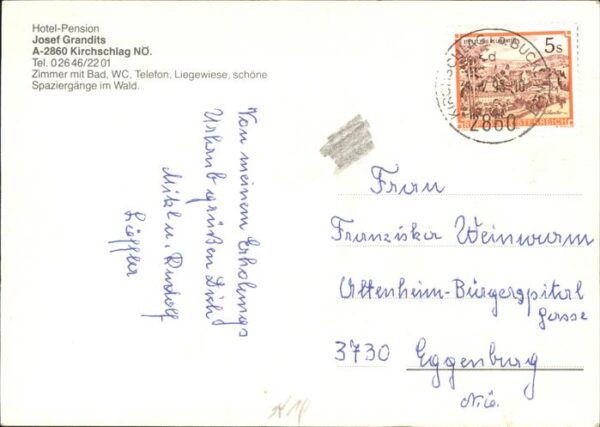 Hotel-Pension
Josef Grandits
A-2860 Kirchschlag NÖ.
Tel. 0 26 46/22 01
Zimmer mit Bad, WC, Telefon, Liegewiese, schöne
Spaziergänge im Wald.
5s
KIRCHSCHLAG i.d. BUCKL
2860
Von meinem Erholungs
Urlaub grüßen Dich
Mitzl u. Rudolf
Löffler
Frau
Franziska Weinwurm
Altenheim-Bürgerspital
Gasse
3730 Eggenburg
N.Ö.